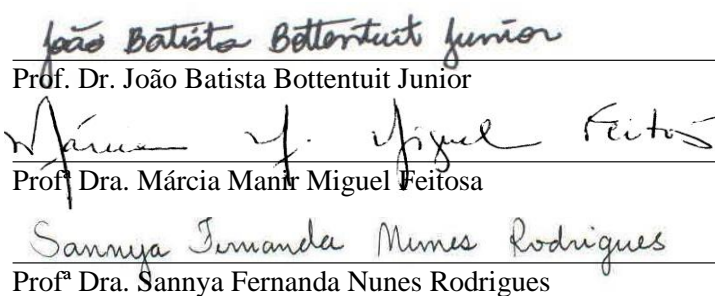 João Batista Bottentuit Junior
Prof. Dr. João Batista Bottentuit Junior
Márcia M. Miguel Feitosa
Profª Dra. Márcia Manir Miguel Feitosa
Sannya Fernanda Nunes Rodrigues
Profª Dra. Sannya Fernanda Nunes Rodrigues